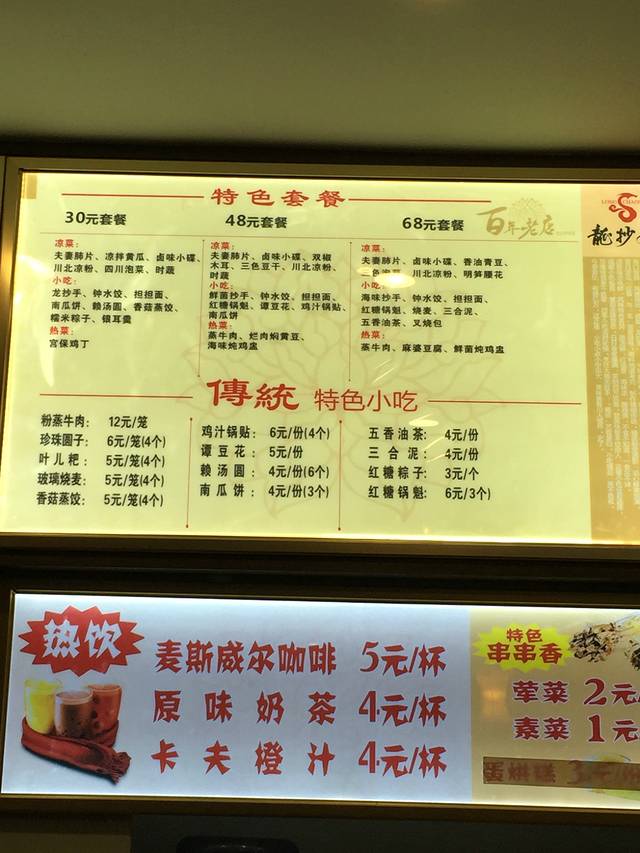 特色套餐
30元套餐
凉菜:
夫妻肺片、凉拌黄瓜、卤味小碟、
川北凉粉、四川泡菜、时蔬
小吃:
龙抄手、钟水饺、担担面、
南瓜饼、赖汤圆、香菇蒸饺、
糯米粽子、银耳羹
热菜:
宫保鸡丁
48元套餐
凉菜:
夫妻肺片、卤味小碟、双椒
木耳、三色豆干、川北凉粉、
时蔬
小吃:
鲜菌抄手、钟水饺、担担面、
红糖锅魁、谭豆花、鸡汁锅贴、
南瓜饼
热菜:
蒸牛肉、烂肉焖黄豆、
海味炖鸡盅
68元套餐
凉菜:
夫妻肺片、卤味小碟、香油青豆、
三色泡菜、川北凉粉、明笋腰花
小吃:
海味抄手、钟水饺、担担面、
红糖锅魁、烧麦、三合泥、
五香油茶、叉烧包
热菜:
蒸牛肉、麻婆豆腐、鲜菌炖鸡盅
百年老店
龍抄
傳統 特色小吃
粉蒸牛肉: 12元/笼
珍珠圆子: 6元/笼(4个)
叶儿粑: 5元/笼(4个)
玻璃烧麦: 5元/笼(4个)
香菇蒸饺: 5元/笼(4个)
鸡汁锅贴: 6元/份(4个)
谭豆花: 5元/份
赖汤圆: 4元/份(6个)
南瓜饼: 4元/份(3个)
五香油茶: 4元/份
三合泥: 4元/份
红糖粽子: 3元/个
红糖锅魁: 6元/3个)
热饮
麦斯威尔咖啡 5元/杯
原味奶茶 4元/杯
卡夫橙汁 4元/杯
特色
串串香
荤菜 2元
素菜 1元
蛋烘糕 3元/